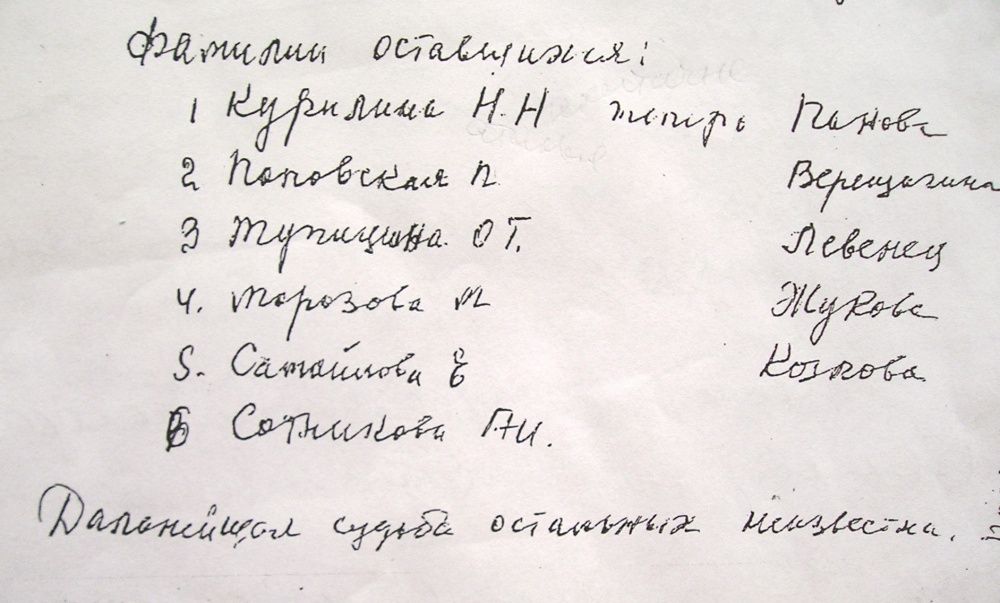 Фамилии оставшихся:
1 Курилина Н.Н теперь Панова
2 Поповская П. Верещагина
3 Тупицина О Т. Левенец
4. Морозова М Жукова
5. Самойлова Е Козлова
6 Сотникова Г.И.
Дальнейшая судьба остальных неизвестна.